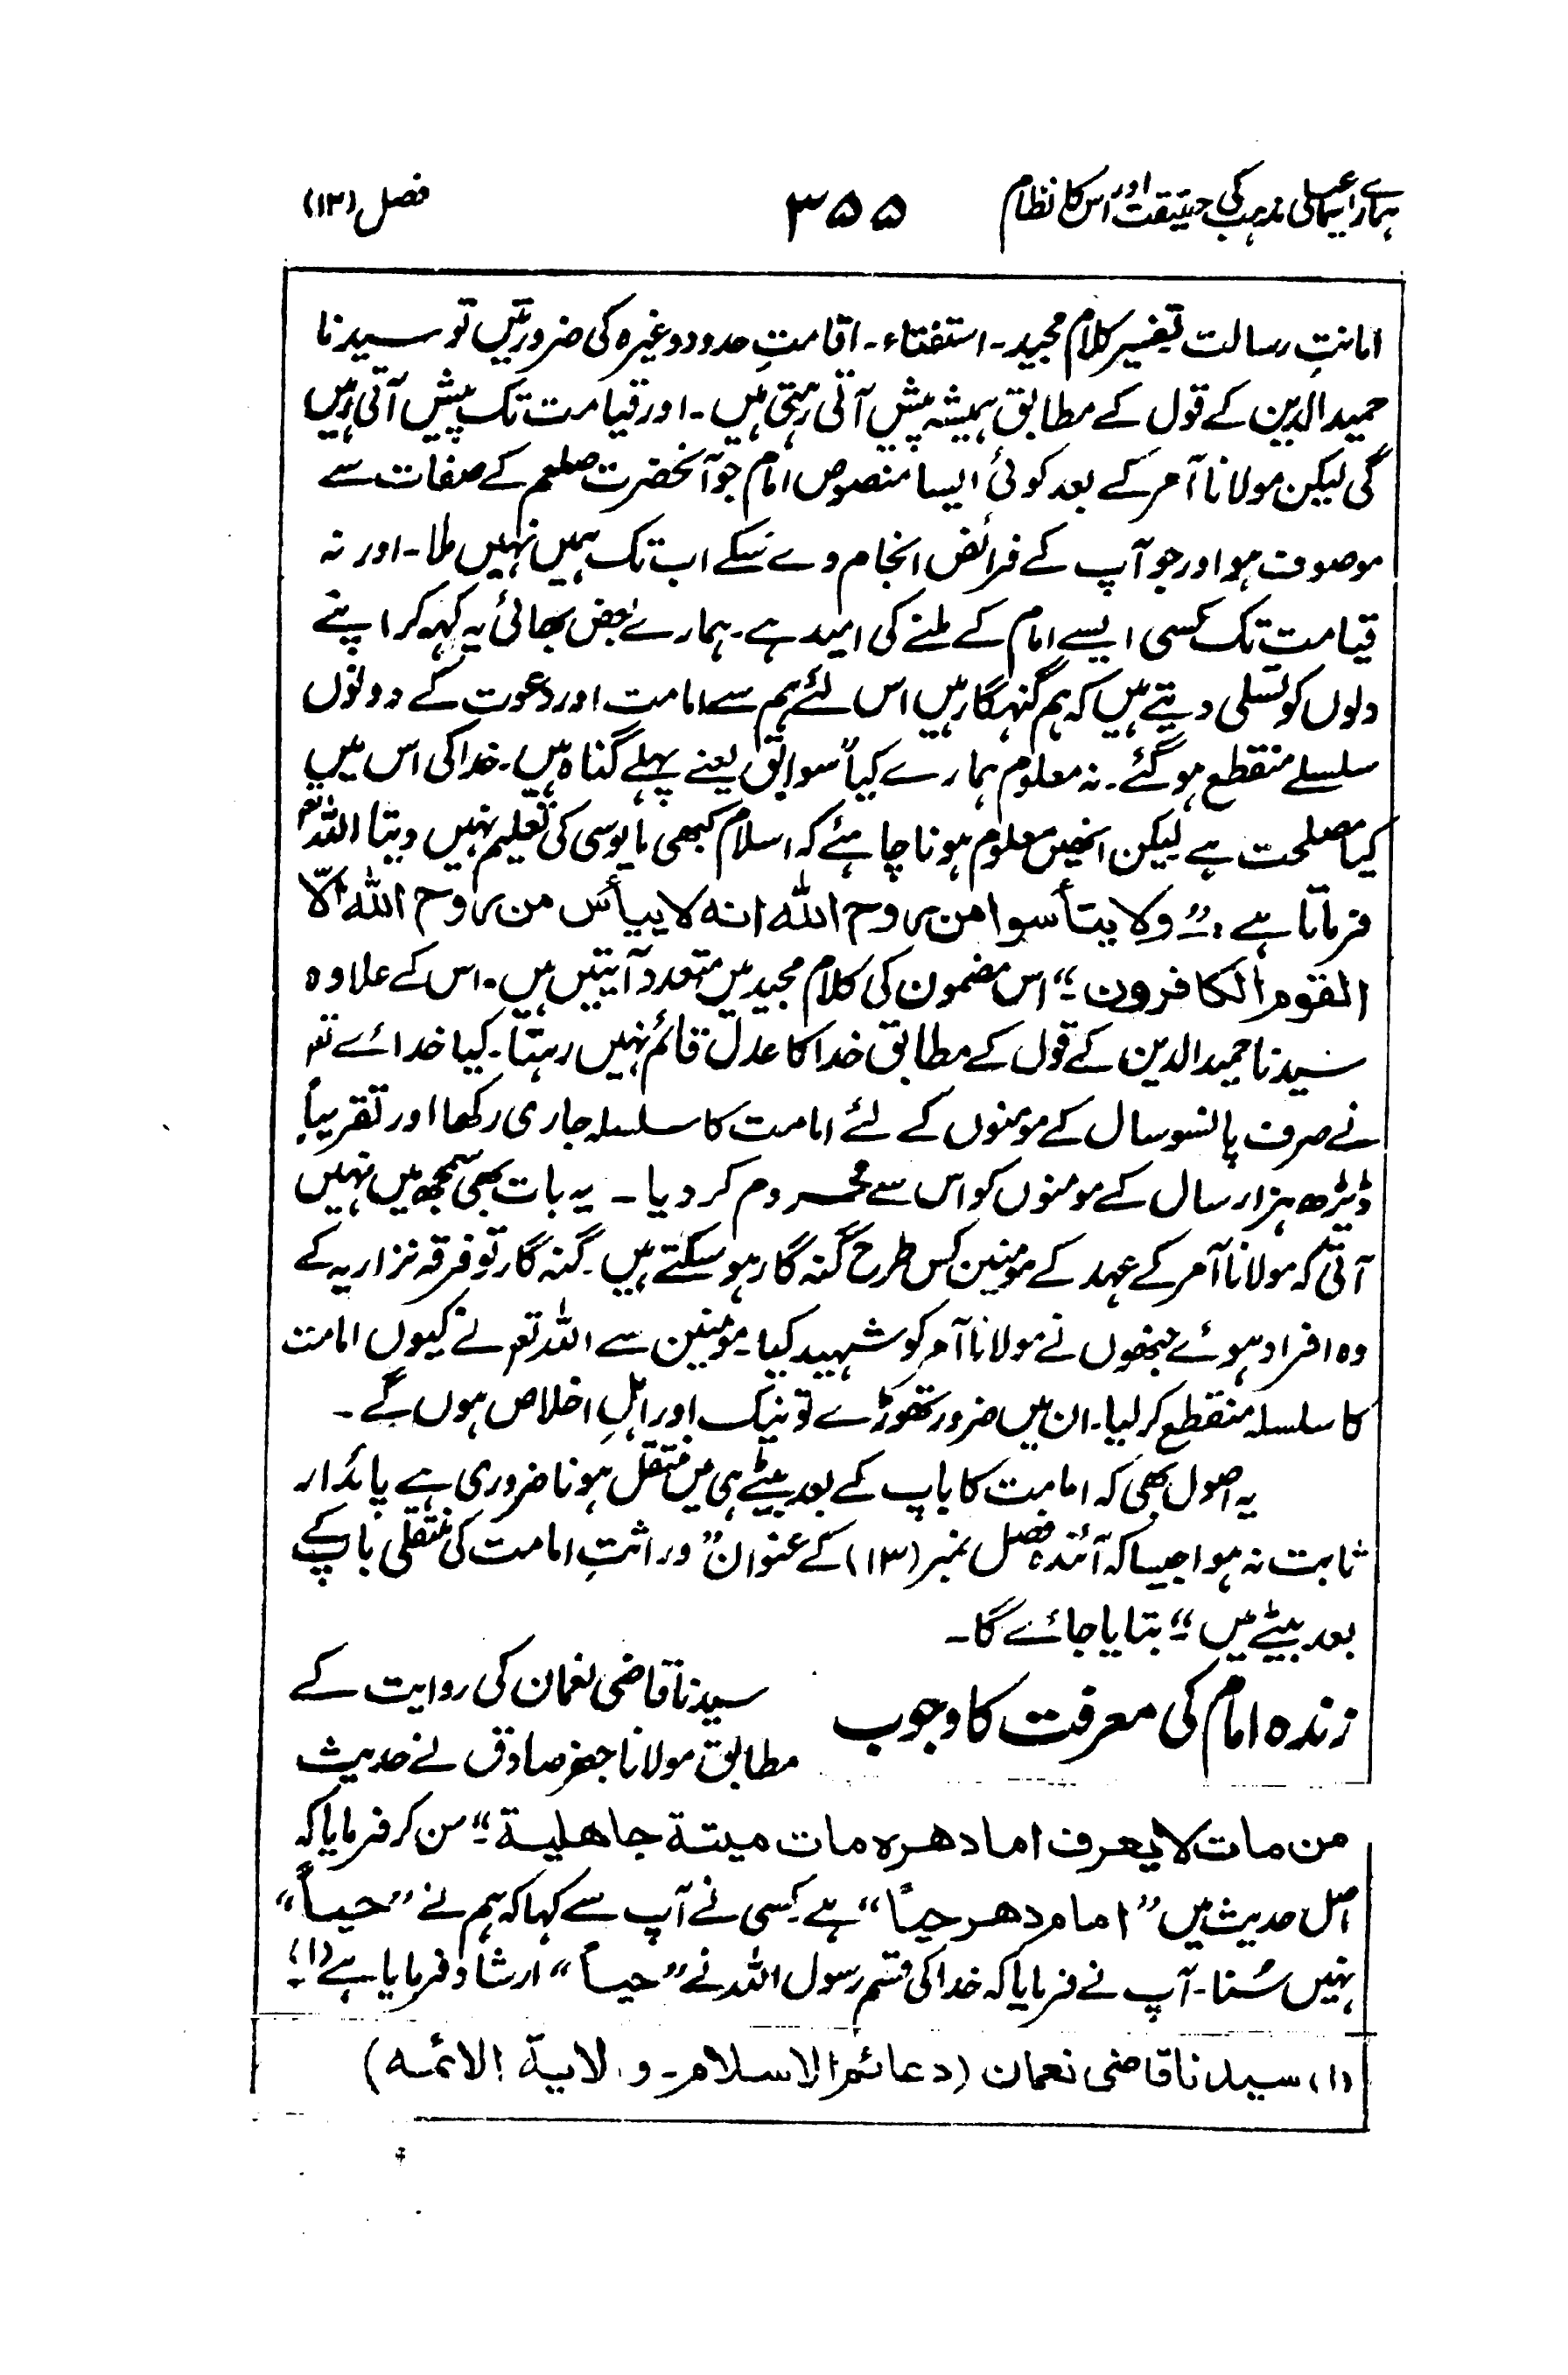 ہمارے اسماعیلی مذہب کی حقیقت اور اس کا نظام ۳۵۵ فصل (۱۲)
امانتِ رسالت تفسیر کلام مجید۔ استفتاء۔ اقامتِ حدود وغیرہ کی ضرورتیں تو سیدنا
حمید الدین کے قول کے مطابق ہمیشہ پیش آتی رہتی ہیں۔ اور قیامت تک پیش آتی رہیں
گی لیکن مولانا آمر کے بعد کوئی ایسا منصوص امام جو آنحضرت صلعم کے صفات سے
موصوف ہو اور جو آپ کے فرائض انجام دے سکے اب تک ہمیں نہیں ملا۔ اور نہ
قیامت تک کسی ایسے امام کے ملنے کی امید ہے۔ ہمارے بعض بھائی یہ کہہ کر اپنے
دلوں کو تسلی دیتے ہیں کہ ہم گنہگار ہیں اس لئے ہم سے امامت اور دعوت کے دونوں
سلسلے منقطع ہو گئے۔ نہ معلوم ہمارے کیا "سوابق یعنے پہلے گناہ ہیں۔ خدا کی اس میں
کیا مصلحت ہے لیکن انھیں معلوم ہونا چاہئے کہ اسلام کبھی مایوسی کی تعلیم نہیں دیتا اللہ تعم
فرماتا ہے :۔ "ولا یتأسوا من روح اللہ انہ لا ییأس من روح اللہ الّا
القوم الکافرون"؛ اس مضمون کی کلام مجید میں متعدد آیتیں ہیں۔ اس کے علاوہ
سیدنا حمید الدین کے قول کے مطابق خدا کا عدل قائم نہیں رہتا۔ کیا خدائے تعم
نے صرف پانسو سال کے مومنوں کے لئے امامت کا سلسلہ جاری رکھا اور تقریباً
ڈیڑھ ہزار سال کے مومنوں کو اس سے محروم کر دیا۔ یہ بات بھی سمجھ میں نہیں
آتی کہ مولانا آمر کے عہد کے مومنین کس طرح گنہ گار ہو سکتے ہیں۔ گنہ گار تو فرقہ نزاریہ کے
وہ افراد ہوئے جنھوں نے مولانا آمر کو شہید کیا۔ مومنین سے اللہ تعم نے کیوں امامت
کا سلسلہ منقطع کر لیا۔ ان میں ضرور تھوڑے تو نیک اور اہلِ اخلاص ہوں گے۔
یہ اصول بھی کہ امامت کا باپ کے بعد بیٹے ہی میں منتقل ہونا ضروری ہے پائدار
ثابت نہ ہوا جیسا کہ آئندہ فصل نمبر (۱۳) کے عنوان "وراثتِ امامت کی منتقلی باپ کے
بعد بیٹے میں"؛ بتایا جائے گا۔
زندہ امام کی معرفت کا وجوب
سیدنا قاضی نعمان کی روایت کے
مطابق مولانا جعفر صادق نے حدیث
من مات لا یعرف امام دھرہ مات میتة جاھلیة"؛ سن کر فرمایا کہ
اصل حدیث میں "امام دھر حیاً" ہے۔ کسی نے آپ سے کہا کہ ہم نے "حیاً"
نہیں سُنا۔ آپ نے فرمایا کہ خدا کی قسم رسول اللہ نے "حیاً" ارشاد فرمایا ہے (۱)؛
(۱) سیدنا قاضی نعمان (دعائم الاسلام۔ ولایة الائمہ)